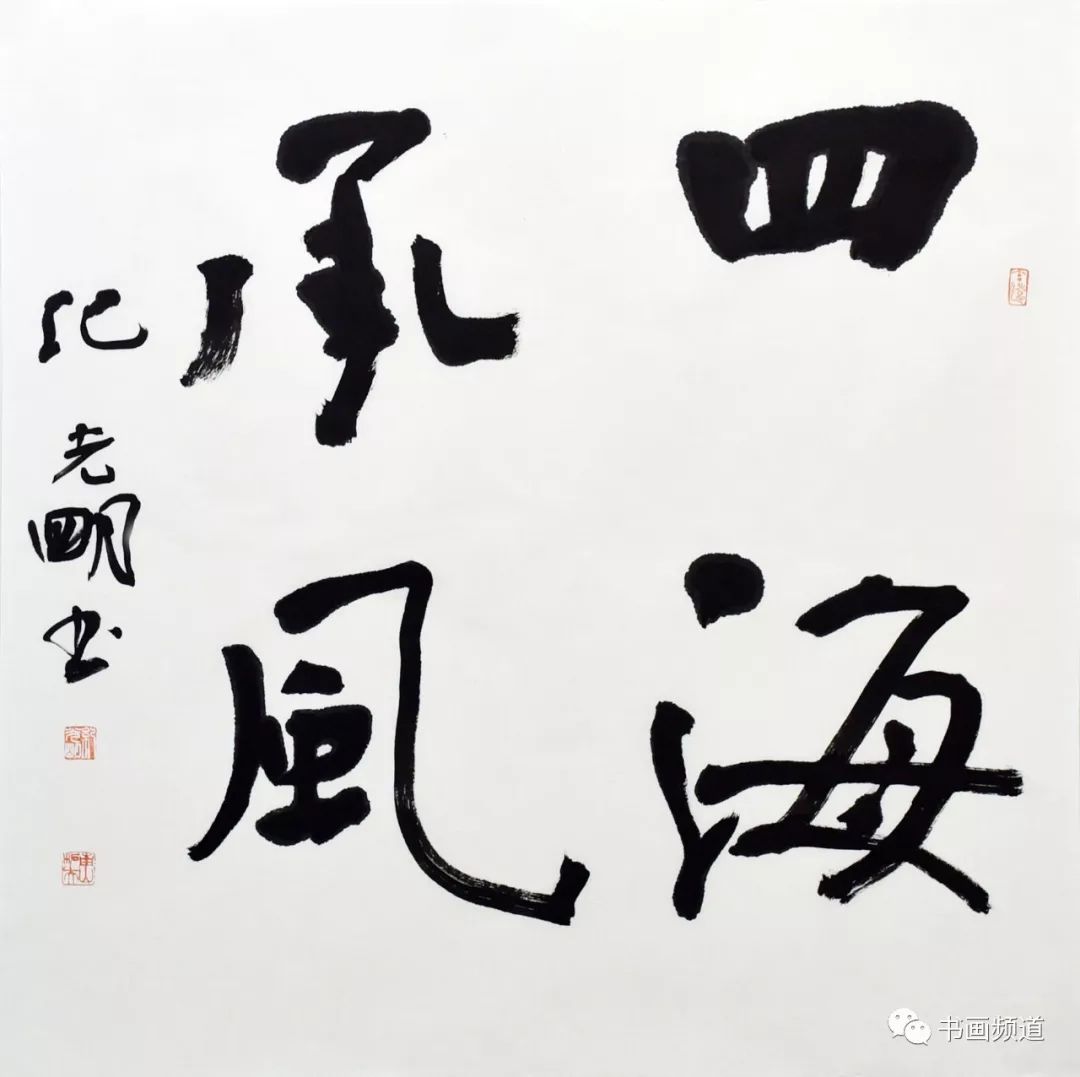 四海
承風
纪光明书
书画频道